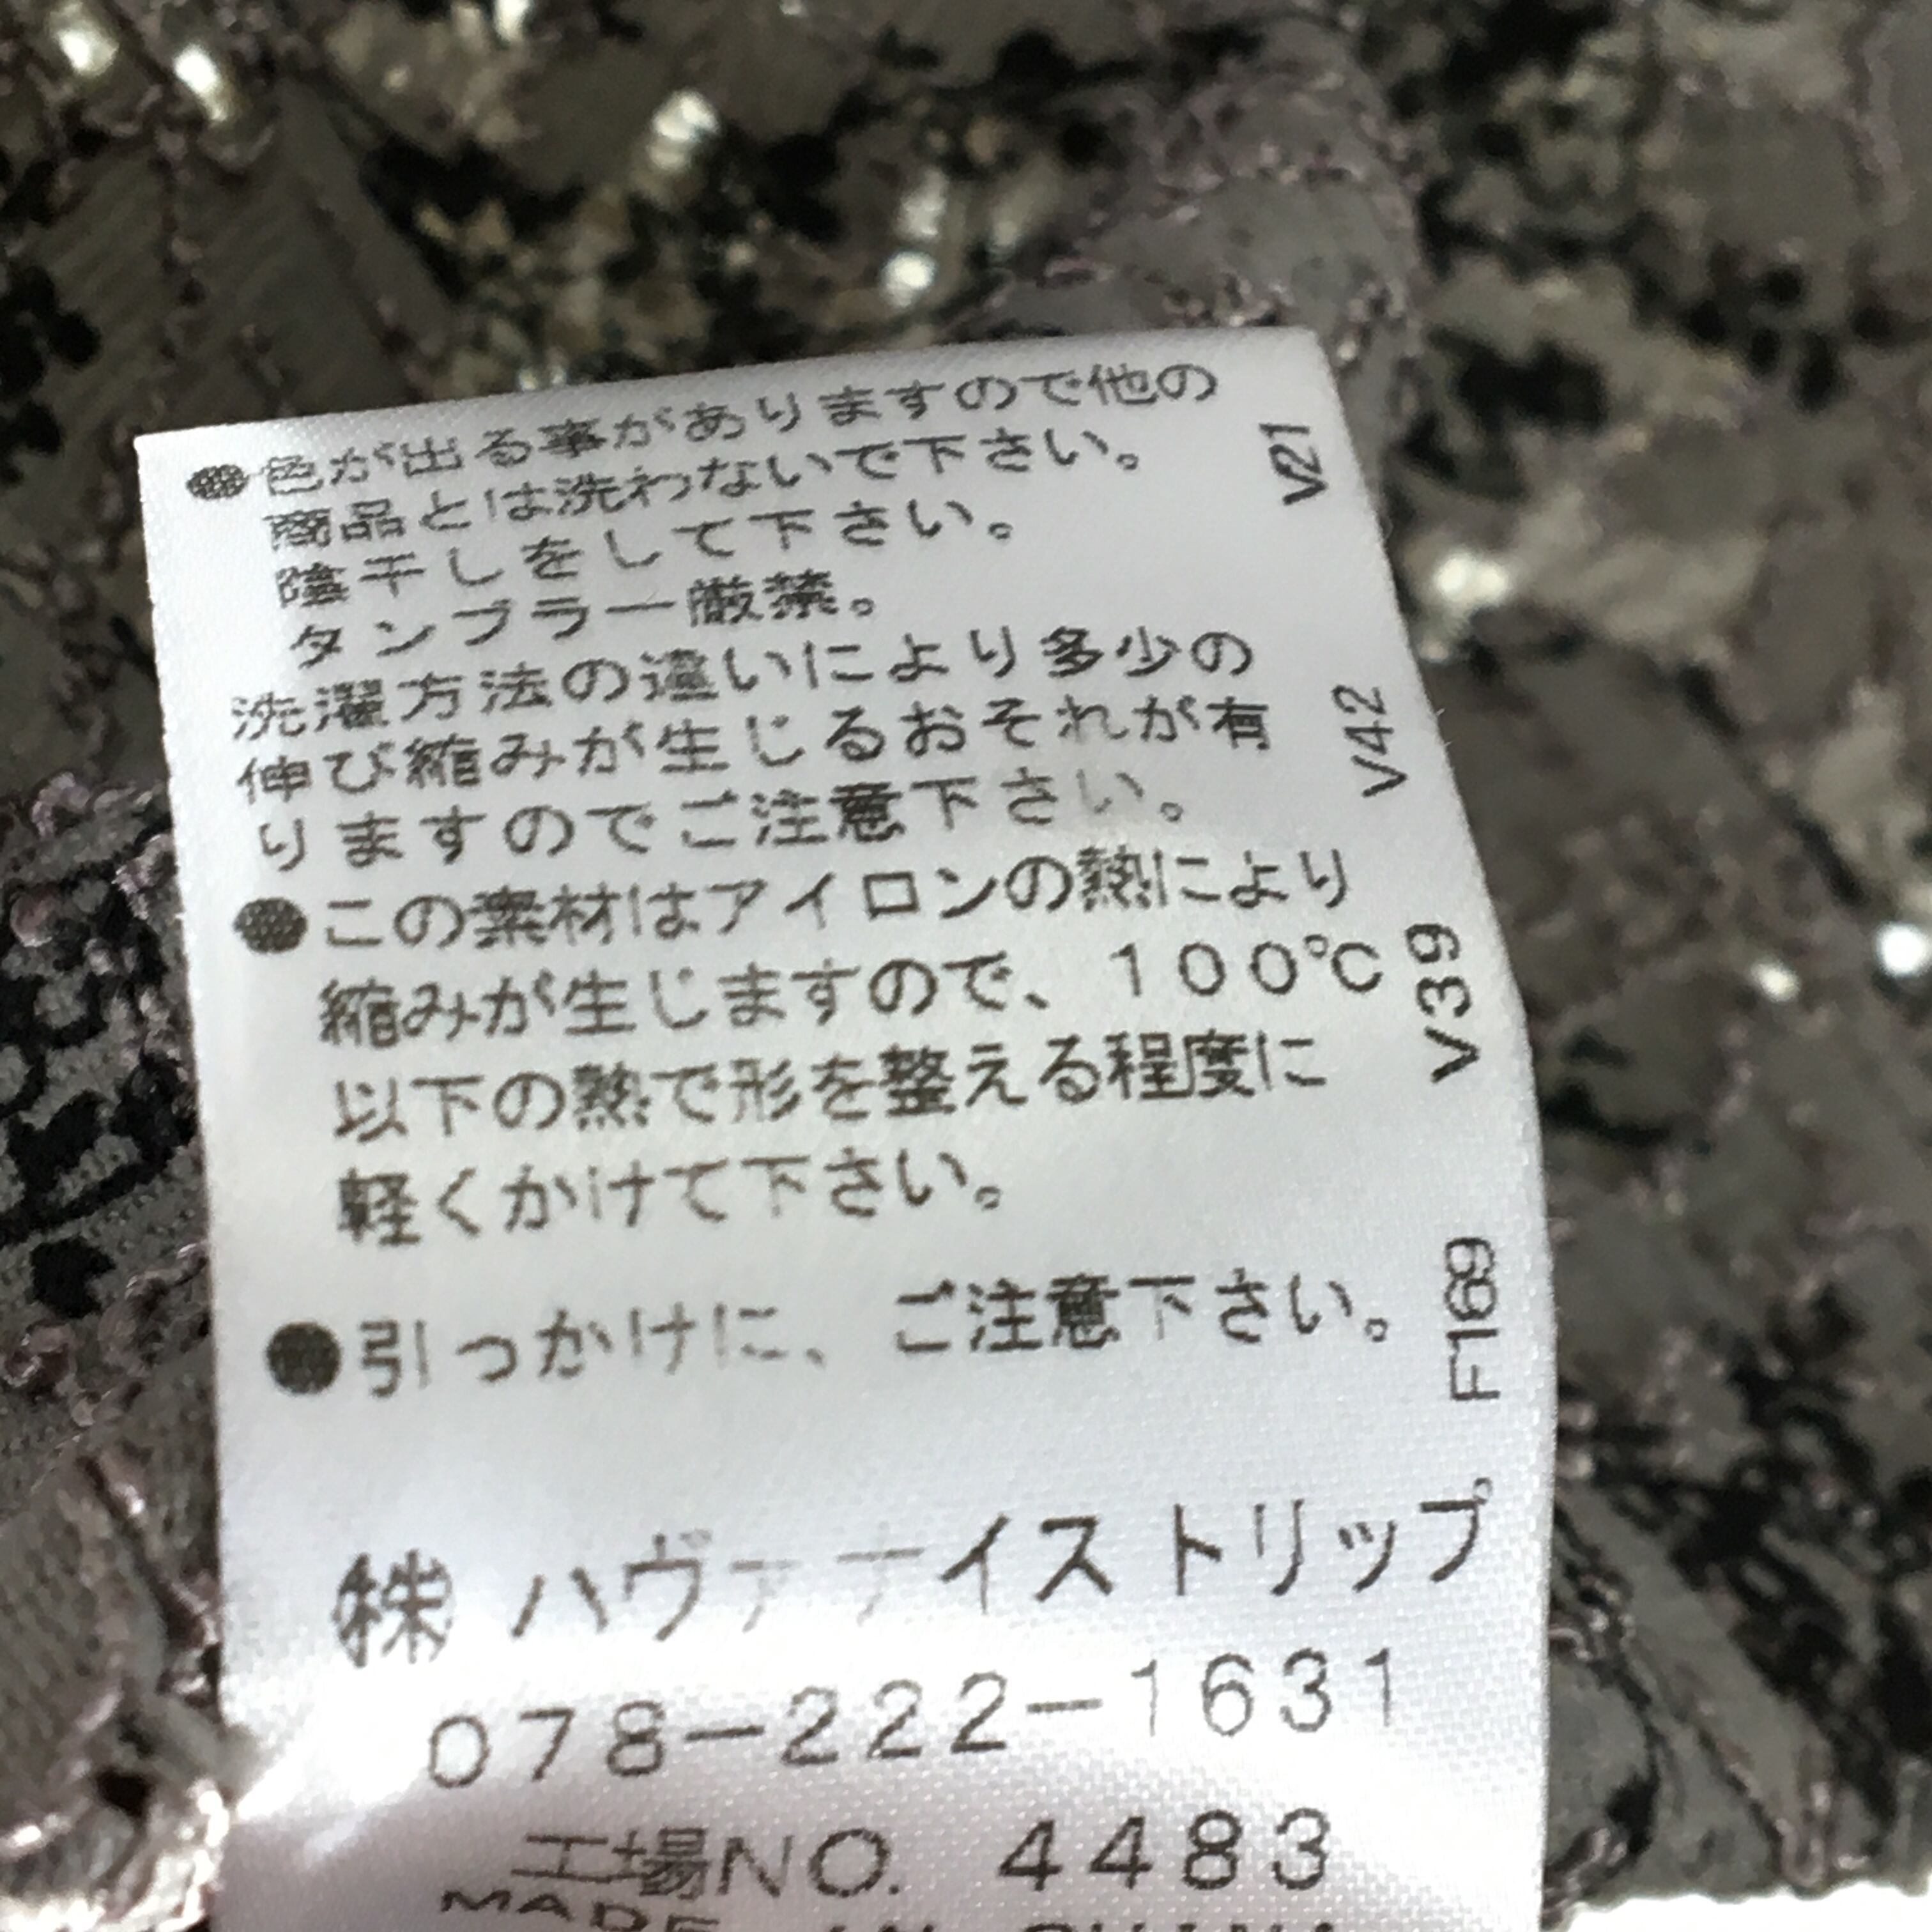 ●色が出る事がありますので他の
商品とは洗わないで下さい。
陰干しをして下さい。
タンブラー厳禁。
洗濯方法の違いにより多少の
伸び縮みが生じるおそれが有
りますのでご注意下さい。
●この素材はアイロンの熱により
縮みが生じますので、100℃
以下の熱で形を整える程度に
軽くかけて下さい。
●引っかけに、ご注意下さい。
V21
V42
V39
F169
㈱ハヴァナイストリップ
078-222-1631
工場NO. 4483
MADE IN CHINA